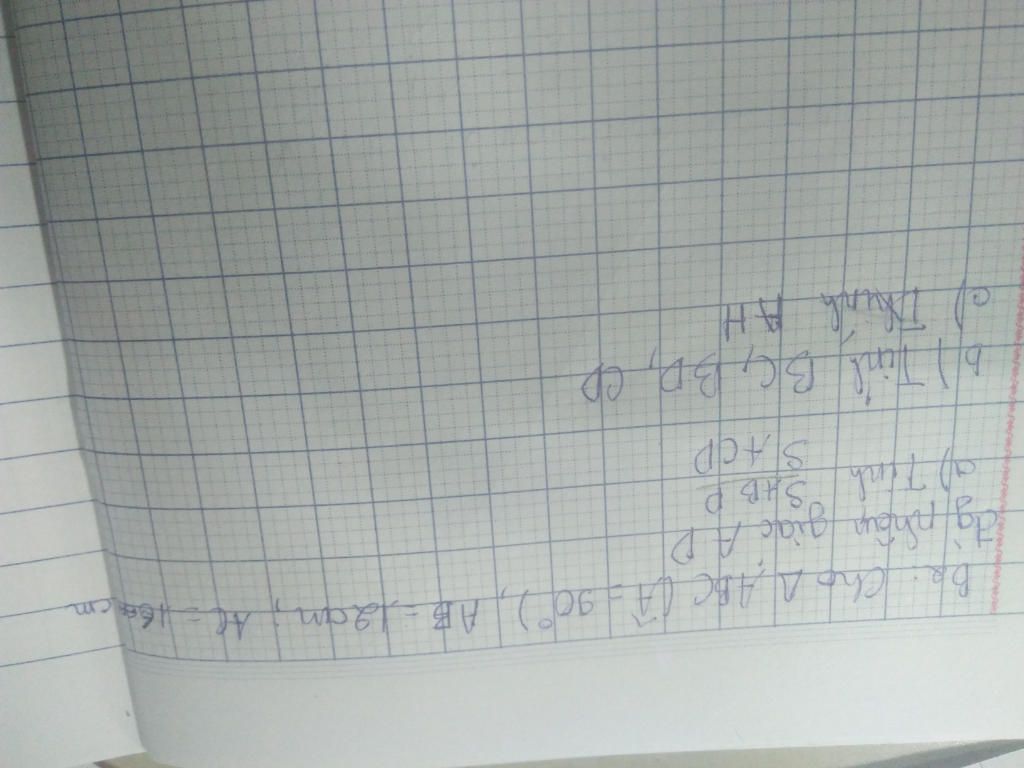 B2: Cho Δ ABC (Â = 90°), AB = 12cm; AC = 16cm
đg phân giác AD
a) Tính S ABD / S ACD
b) Tính BC, BD, CD
c) Tính AH